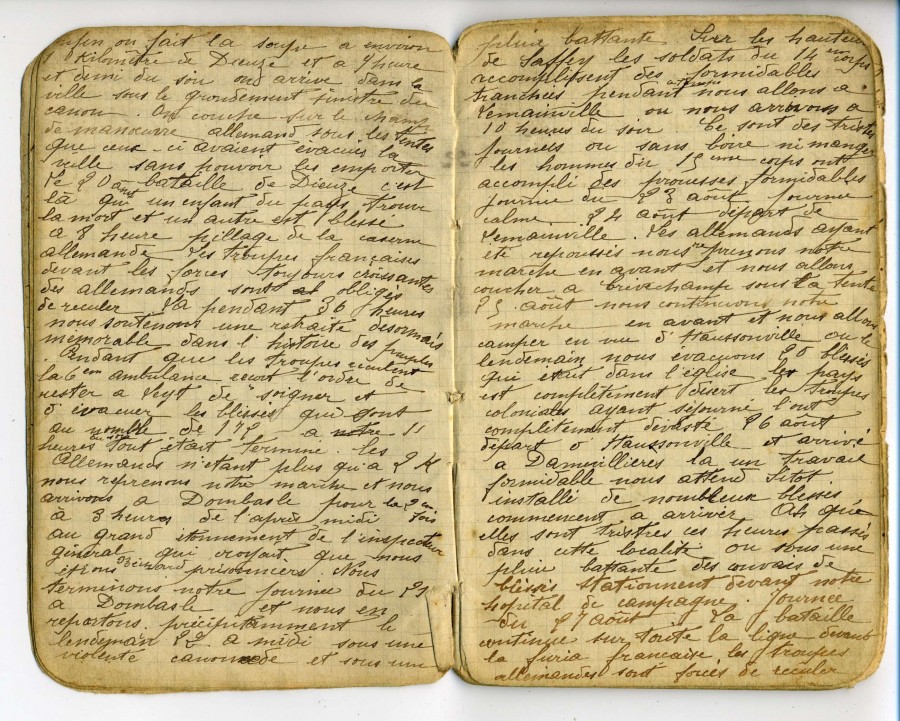 enfin on fait la soupe a environ
1 kilomètre de Dieuze et a 7 heure
et demi du soir on arrive dans la
ville sous le grondement sinistre du
canon. On coupe sur le champ
de manœuvre allemand sous les tentes
que ceux-ci avaient évacués la
ville sans pouvoir les emporter
Le 20 aout bataille de Dieuze c'est
là qu'un enfant du pays trouve
la mort et un autre est blessé
a 8 heure pillage de la caserne
allemande Les troupes françaises
devant les forces toujours croissantes
des allemands sont obligés
de reculer La pendant 36 heures
nous soutenons une retraite désormais
mémorable dans l'histoire des peuples
. Andant que les troupes reculent
la 6 em ambulance recoit l'ordre de
rester a Vest de soigner et
d'évacuer les blessés qui sont
au nombre de 172 a 11
heures du soir tout était terminé. les
Allemands n'étant plus qu'a 2 K
nous reprenons notre marche et nous
arrivons a Dombasle pour la 2 em fois
à 3 heures de l'après midi
au grand étonnement de l'inspecteur
général qui croyait que nous
étions prisonniers Nous
terminons notre journée du 21
a Dombasle et nous en
repartons précipitamment le
lendemain 22 a midi sous une
violente canonade et sous une
pluie battante Sur les hauteurs
de Saffey les soldats du 14 eme corps
accomplissent des formidables
tranchées pendant nous allons a
Lemainville ou nous arrivons a
10 heures du soir Ce sont des tristes
journées ou sans boire ni manger
les hommes du 15 eme corps ont
accompli des prouesses formidables
journée du 23 août journée
calme 24 aout départ de
Lemainville. Les allemands ayant
été repoussés nous reprenons notre
marche en avant et nous allons
coucher a Brevechamps sous la tente
25 août nous continuons notre
marche en avant et nous allons
camper en vue d'Haussonville ou le
lendemain nous evacuons 20 blessés
qui était dans l'église les pays
est complètement désert les troupes
coloniales ayant séjourné l'ont
completement devasté 26 aout
départ d'Haussonville et arrivé
a Damevillieres la un travail
formidable nous attend Sitot
installé de nombreux blessés
commencent a arriver Ah que
elles sont tristes ces heures passés
dans cette localité ou sous une
pluie battante des convois de
blessés stationnent devant notre
hopital de campagne. Journée
du 27 aout La bataille
continue sur toute la ligne devant
la furia francaise les troupes
allemandes sont forcés de reculer